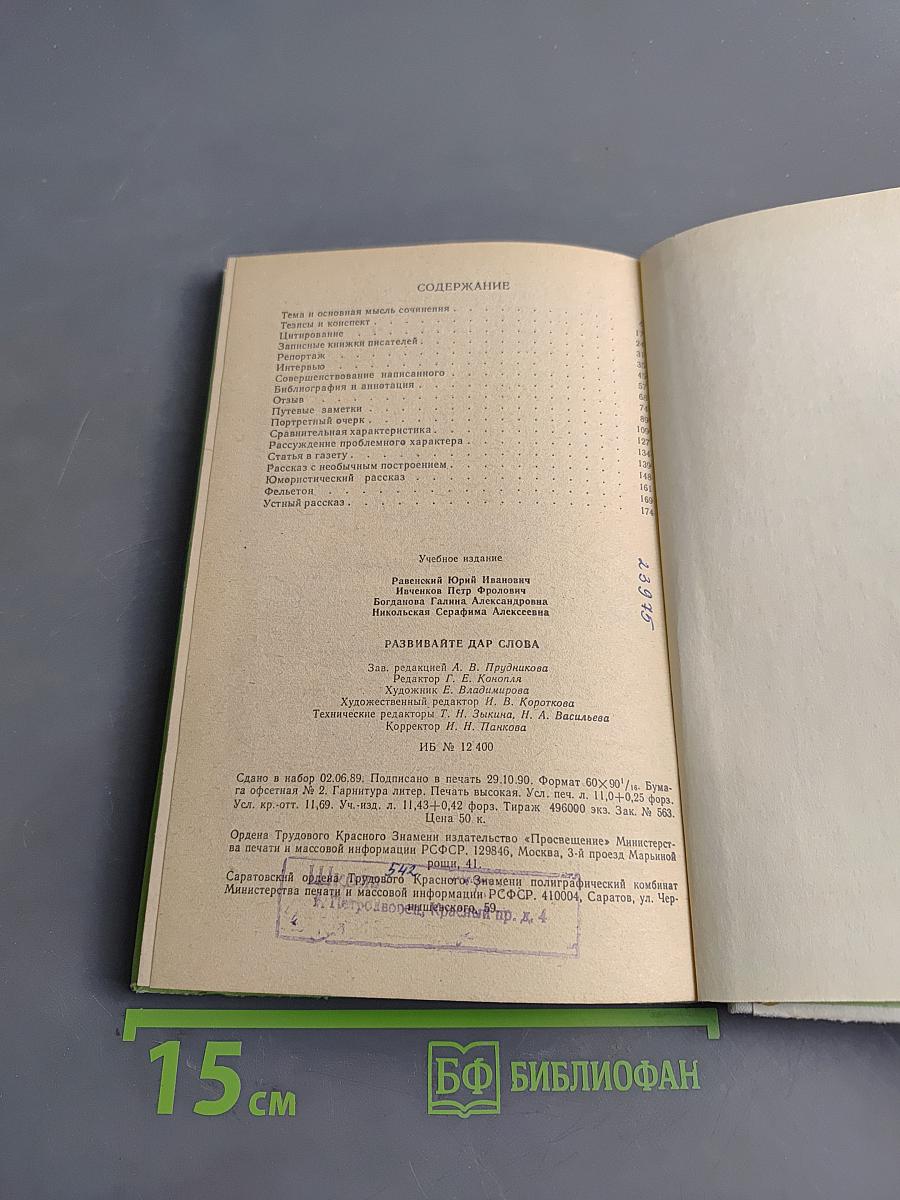 СОДЕРЖАНИЕ
Тема и основная мысль сочинения
Тезисы и конспект
Цитирование
Записные книжки писателей 24
Репортаж 31
Интервью 35
Совершенствование написанного 45
Библиография и аннотация 57
Отзыв 68
Путевые заметки 74
Портретный очерк 89
Сравнительная характеристика 109
Рассуждение проблемного характера 127
Статья в газету 134
Рассказ с необычным построением 139
Юмористический рассказ 148
Фельетон 161
Устный рассказ 169
174
23975
Учебное издание
Равенский Юрий Иванович
Ивченков Петр Фролович
Богданова Галина Александровна
Никольская Серафима Алексеевна
РАЗВИВАЙТЕ ДАР СЛОВА
Зав. редакцией А. В. Прудникова
Редактор Г. Е. Конопля
Художник Е. Владимирова
Художественный редактор И. В. Короткова
Технические редакторы Т. Н. Зыкина, Н. А. Васильева
Корректор И. Н. Панкова
ИБ № 12 400
Сдано в набор 02.06.89. Подписано в печать 29.10.90. Формат 60×90¹/₁₆. Бума-
га офсетная № 2. Гарнитура литер. Печать высокая. Усл. печ. л. 11,0+0,25 форз.
Усл. кр.-отт. 11,69. Уч.-изд. л. 11,43+0,42 форз. Тираж 496000 экз. Зак. № 563.
Цена 50 к.
Ордена Трудового Красного Знамени издательство «Просвещение» Министерст-
ва печати и массовой информации РСФСР. 129846, Москва, 3-й проезд Марьиной
рощи, 41.
Саратовский ордена Трудового Красного Знамени полиграфический комбинат
Министерства печати и массовой информации РСФСР. 410004, Саратов, ул. Чер-
нышевского, 59.
Школа 542
г. Петродворец, Красный пр. д. 4
15 см
БФ БИБЛИОФАН